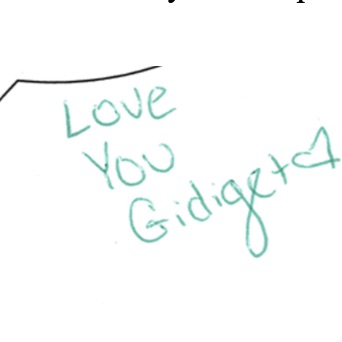 Love
You
Gidiget